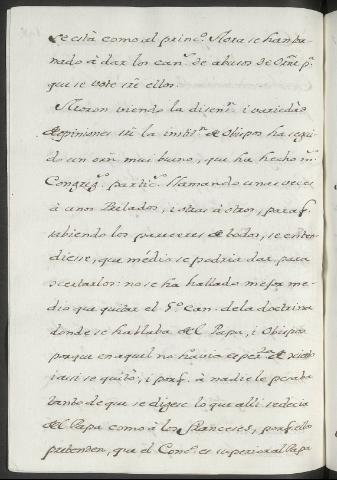 se está como al princ.º Aora se han
nado â dar los can.s de abusos de Orñe p.ª
que se vote srẽ ellos.
Moron viendo la disens.n i variedad
de opiniones srẽ la instit.n de Obispos ha segui
do un orñ mui bueno, que ha hecho m.s
Congreg.s partic.s llamando unas veces
â unos Prelados, i otras â otros, para q.
sabiendo los pareceres de todos, se enten
diese, que medio se podria dar, para
acertarlos: no se ha hallado mejor me
dio que quitar el 5.º can. de la doctrina
donde se hablaba del Papa, i Obispos
porque en aquel no havia
i asi se quitò, i porq. â nadie le pesaba
tanto de que se digese lo que alli se decia
del Papa como â los Franceses, porq. ellos
pretenden, que el Conc.º es superior al Papa